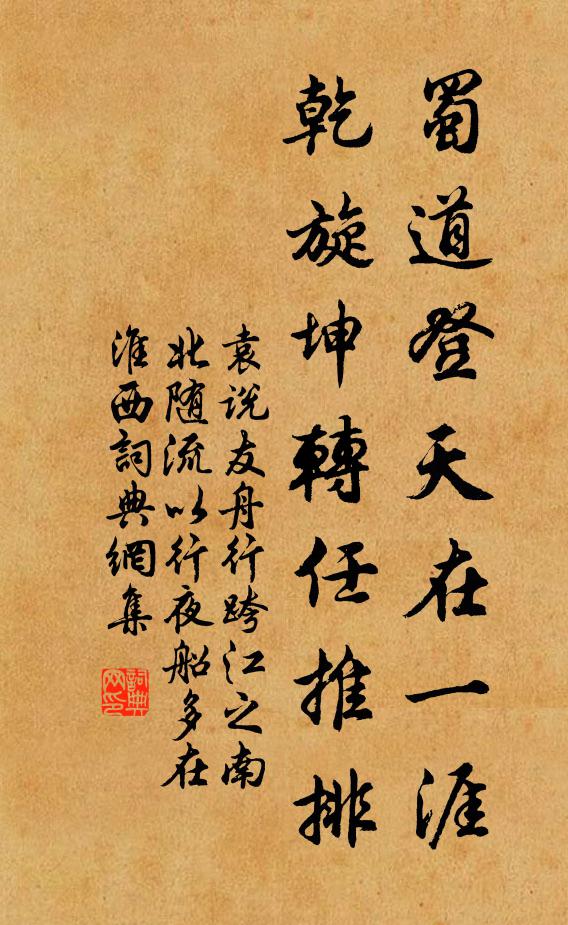 蜀道登天在一涯
乾旋坤轉任推排
袁说友舟行跨江之南
北随流以行夜船多在
淮西詞典網集
詞典
网印